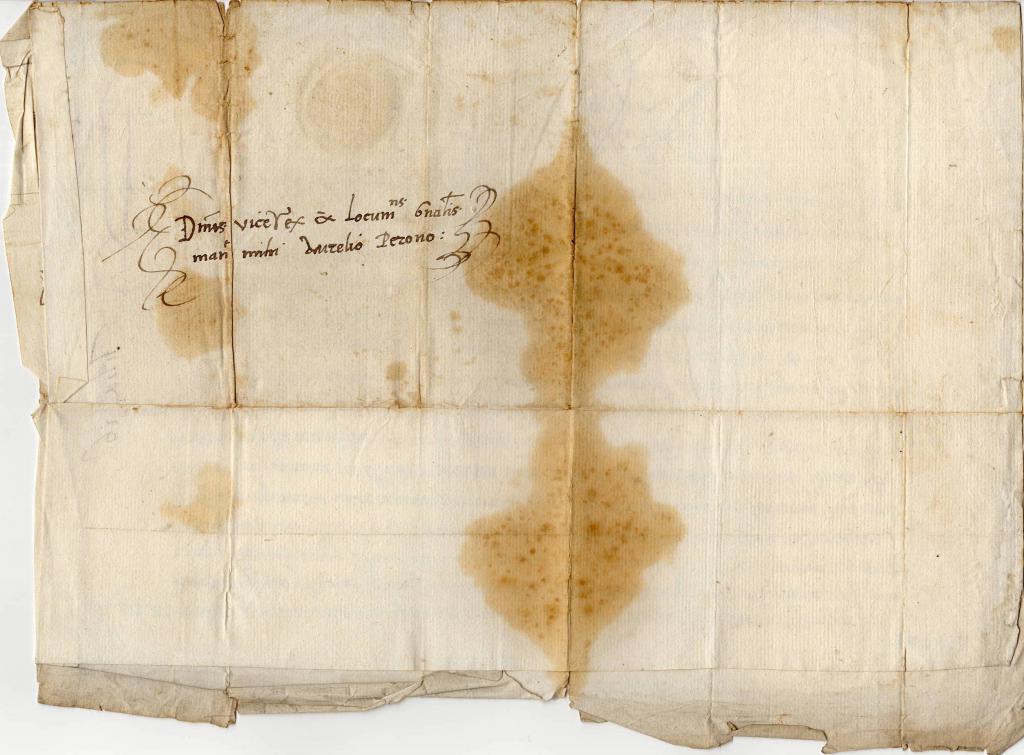 Dnus vicerex & Locumns Gnalis
mant mihi Aurelio Perono: